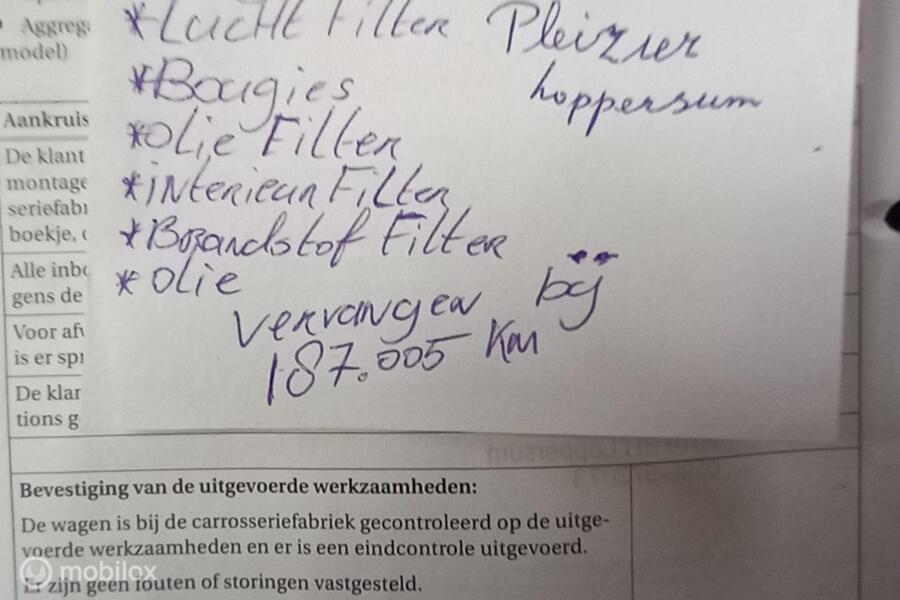 Aggreg
model)
*Lucht Filter Pleizier
hoppersum
*Bougies
*Olie Filter
*interieur Filter
*Brandstof Filter
*Olie
Vervangen bij
187.005 Km
Aankruis
De klant
montage
seriefabr
boekje, 
Alle inbo
gens de
Voor afw
is er spr
De klan
tions g
Bevestiging van de uitgevoerde werkzaamheden:
De wagen is bij de carrosseriefabriek gecontroleerd op de uitge-
voerde werkzaamheden en er is een eindcontrole uitgevoerd.
Er zijn geen fouten of storingen vastgesteld.
mobilox